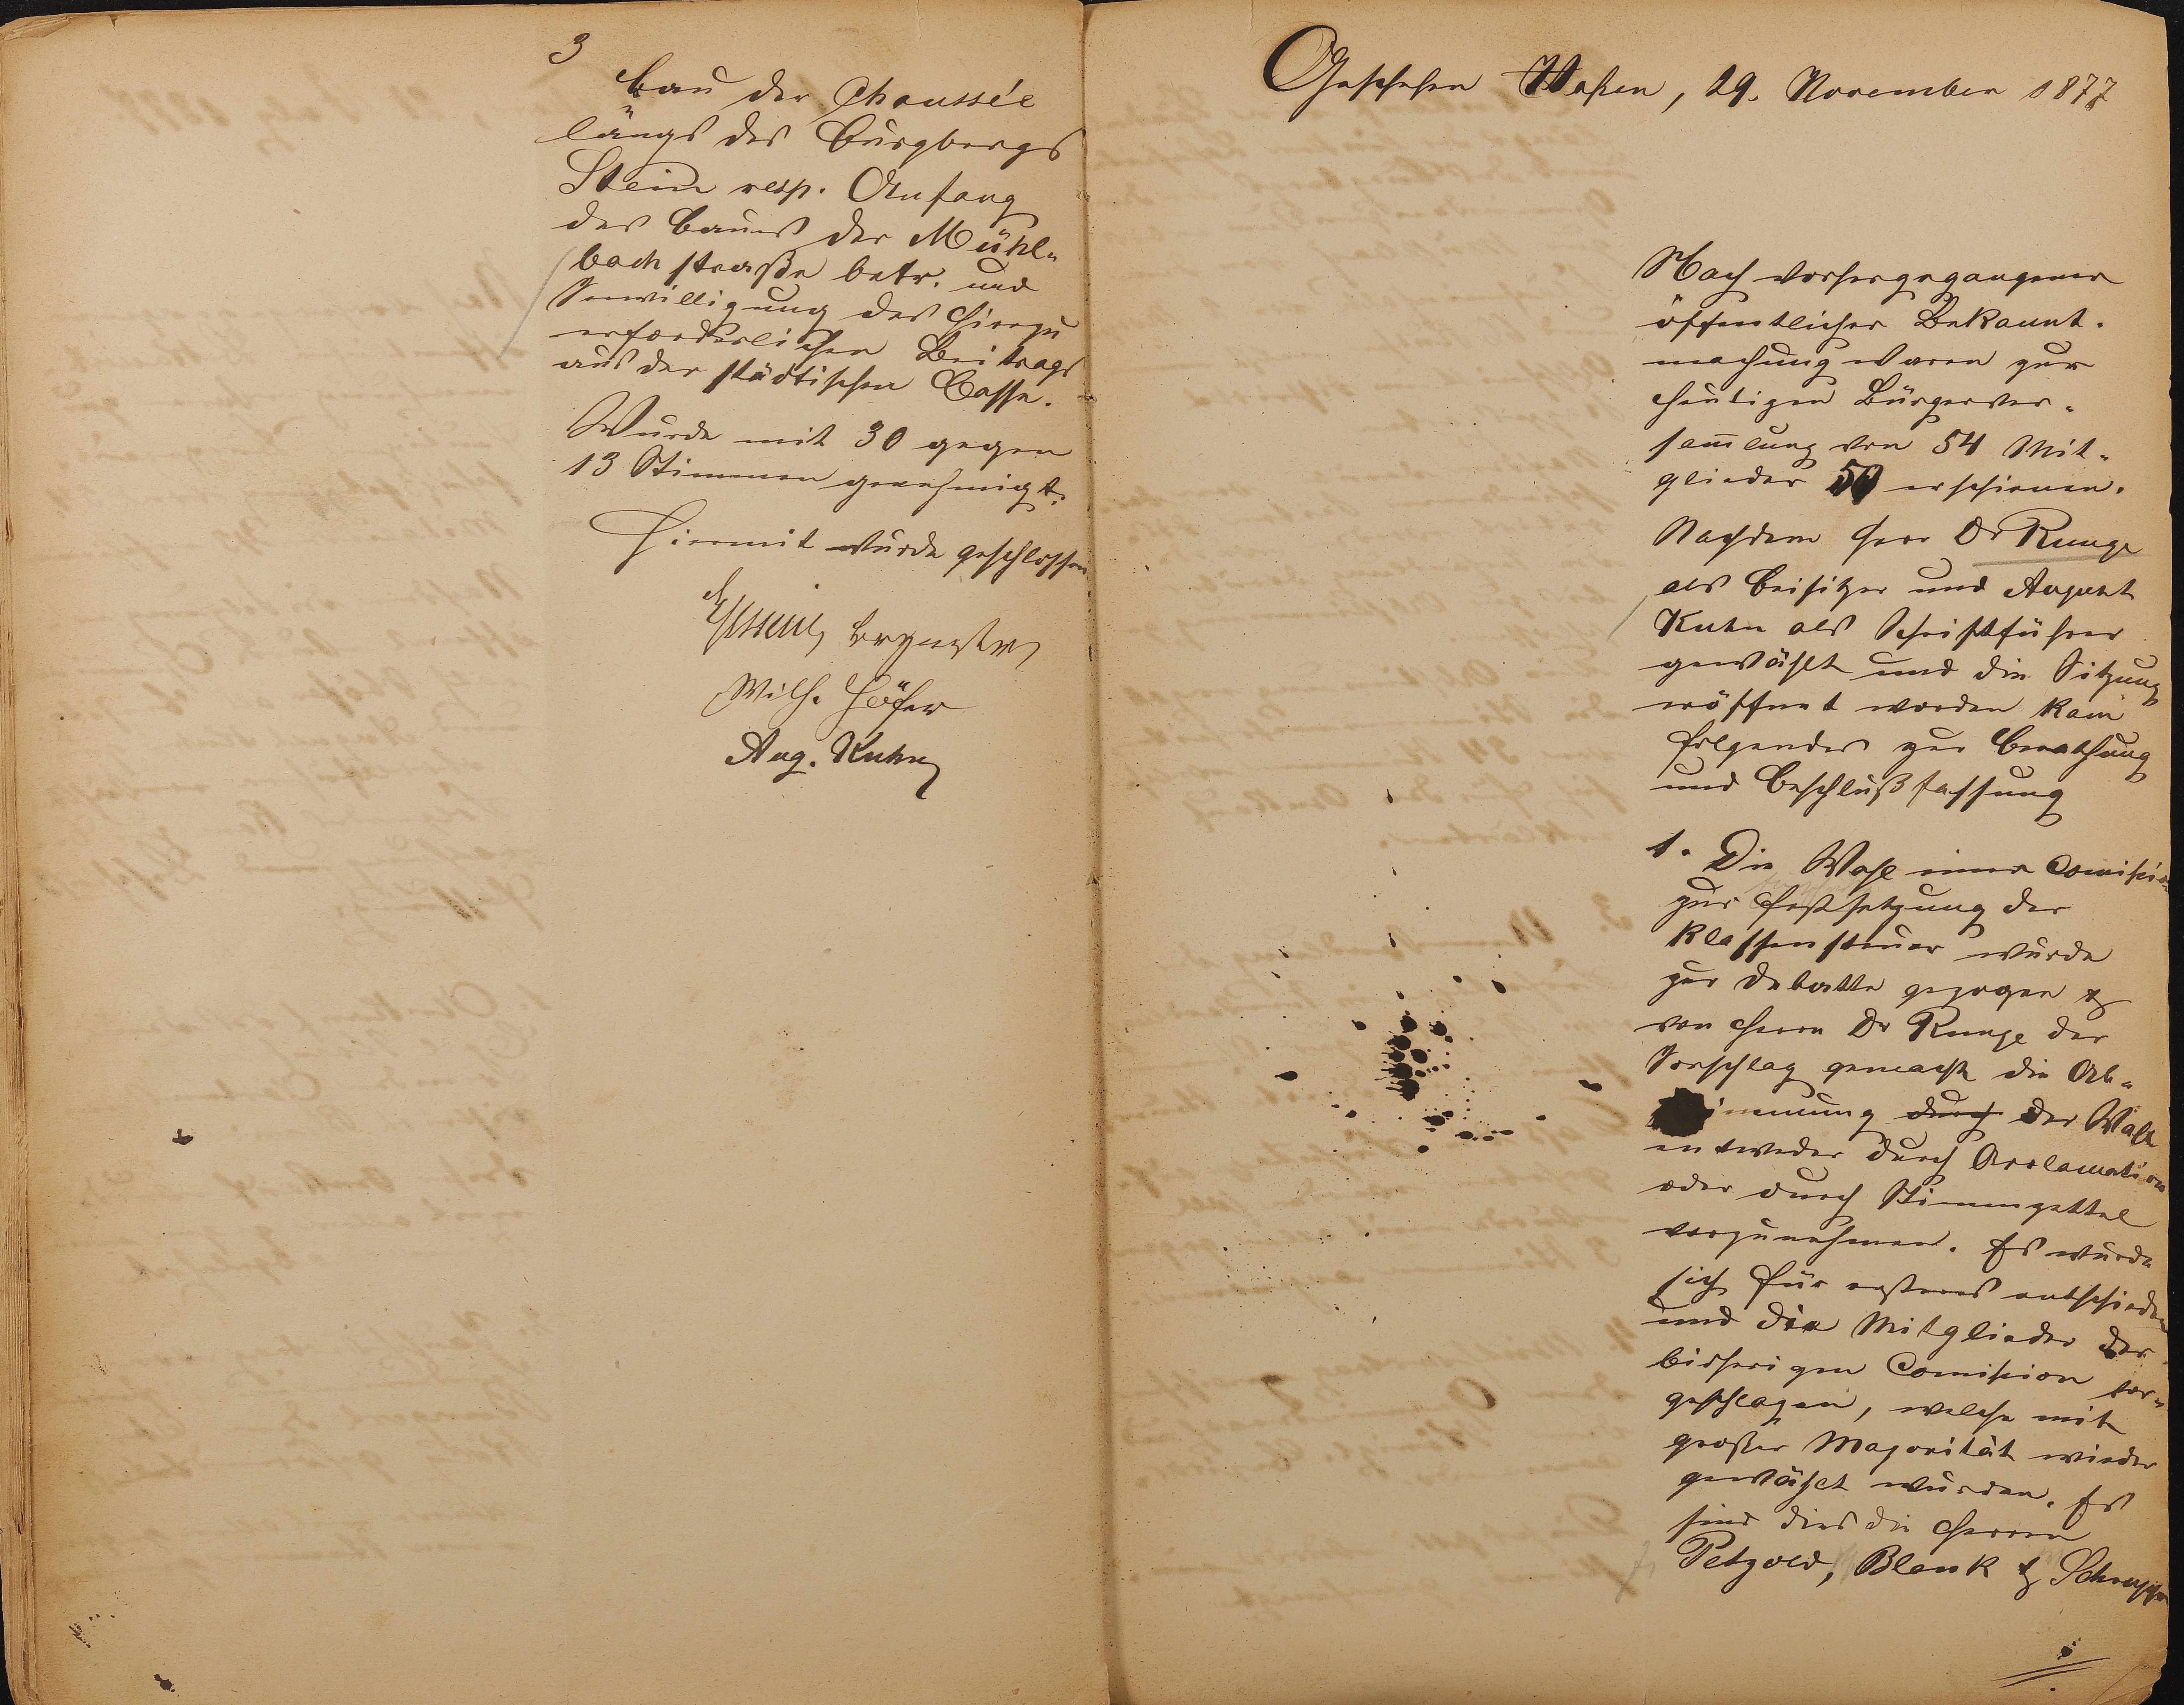 3
Bau der Chaussée
längs des Burgbergs
Stein resp. Anfang
des Baues der Mühl-
bach straße betr. und
Verwilligung des hierzu
erforderlichen Beitrags
aus der städtischen Casse.
Wurde mit 30 gegen
13 Stimmen genehmigt.
Hiermit wurde geschlossen
Brgmstr
Wilh. Höfer
Aug. Kuhn
Geschehen Nassau, 29. November 1877
Nach vorhergegangener
öffentlicher Bekannt-
machung waren zur
heutigen Bürgerver-
sammlung von 54 Mit-
glieder 50 erschienen.
Nachdem Herr Dr Runge
als Beisitzer und August
Kuhn als Schriftführer
gewählt und die Sitzung
eröffnet worden kam
folgendes zur Berathung
und Beschlußfassung
1. Die Wahl einer Comission
zur Festsetzung der
Klassensteuer wurde
zur Debatte gezogen &
von Herrn Dr Runge der
Vorschlag gemacht die Ab-
stimmung durch der Wahl
entweder durch Acclamation
oder durch Stimmzettel
vorzunehmen. Es wurde
sich für ersteres entschieden
und die Mitglieder der
bisherigen Comission vor-
geschlagen, welche mit
großer Majorität wieder
gewählt wurden. Es
sind dies die Herren
Petzold, Blank &